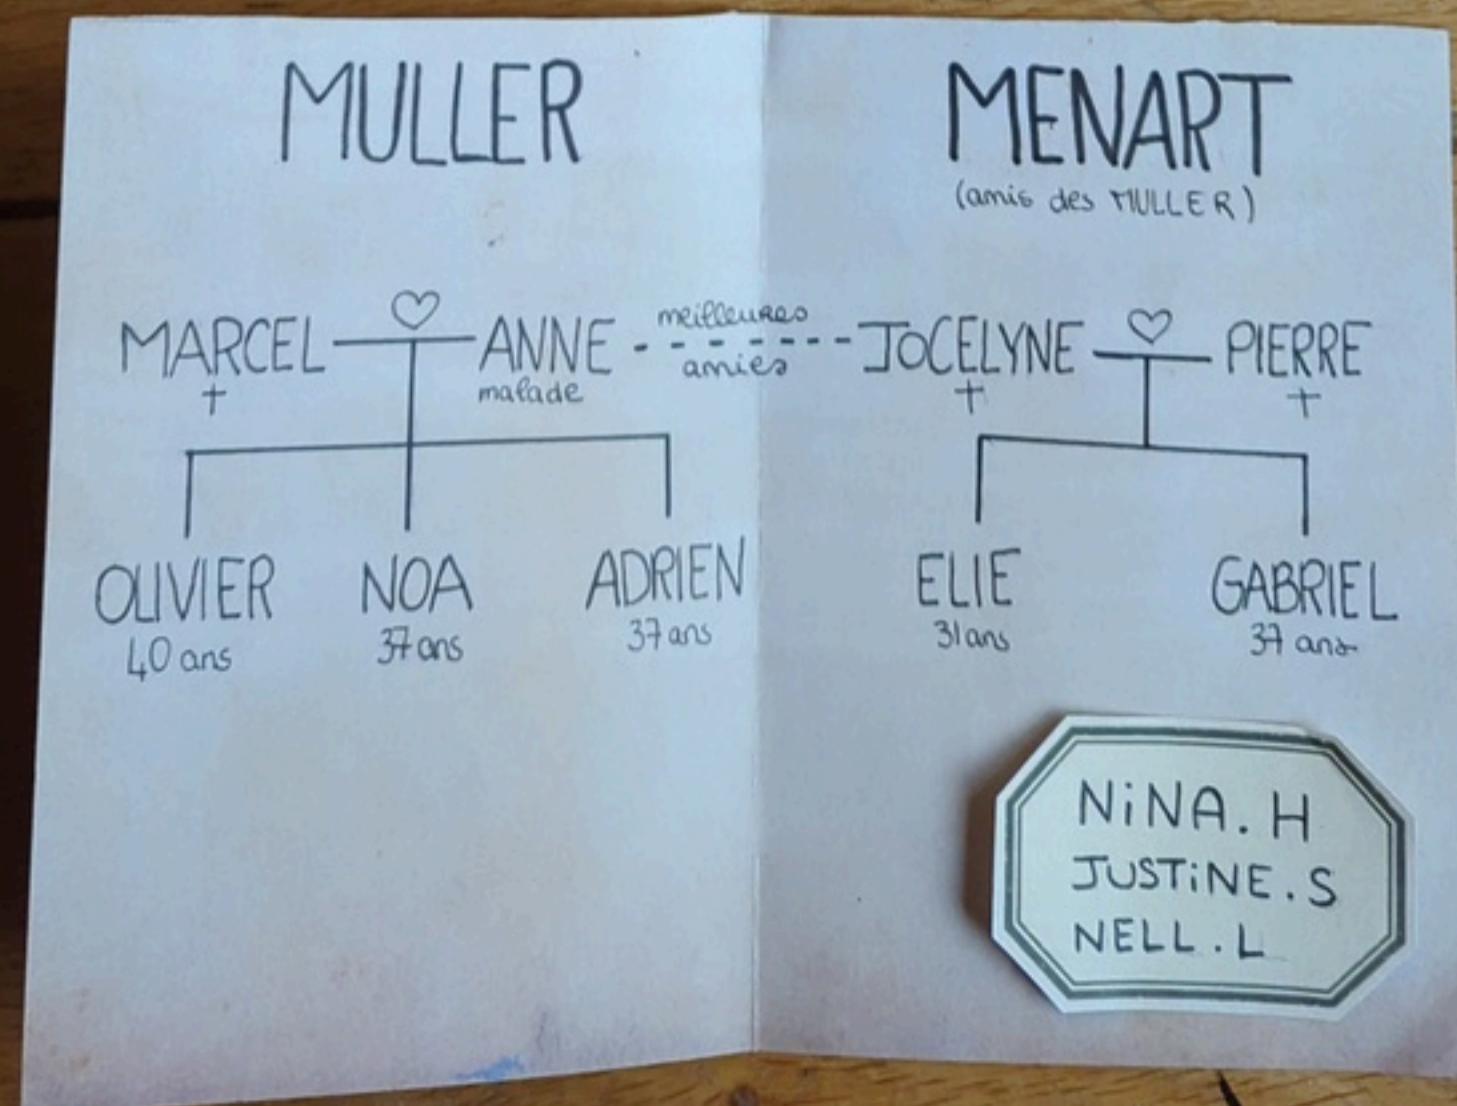 MULLER
MARCEL ♡ ANNE
†
malade
OLIVIER NOA ADRIEN
40 ans 37 ans 37 ans
meilleures
amies
MENART
(amis des MULLER)
JOCELYNE ♡ PIERRE
† †
ELIE GABRIEL
31 ans 37 ans
NiNA. H
JUSTiNE. S
NELL. L